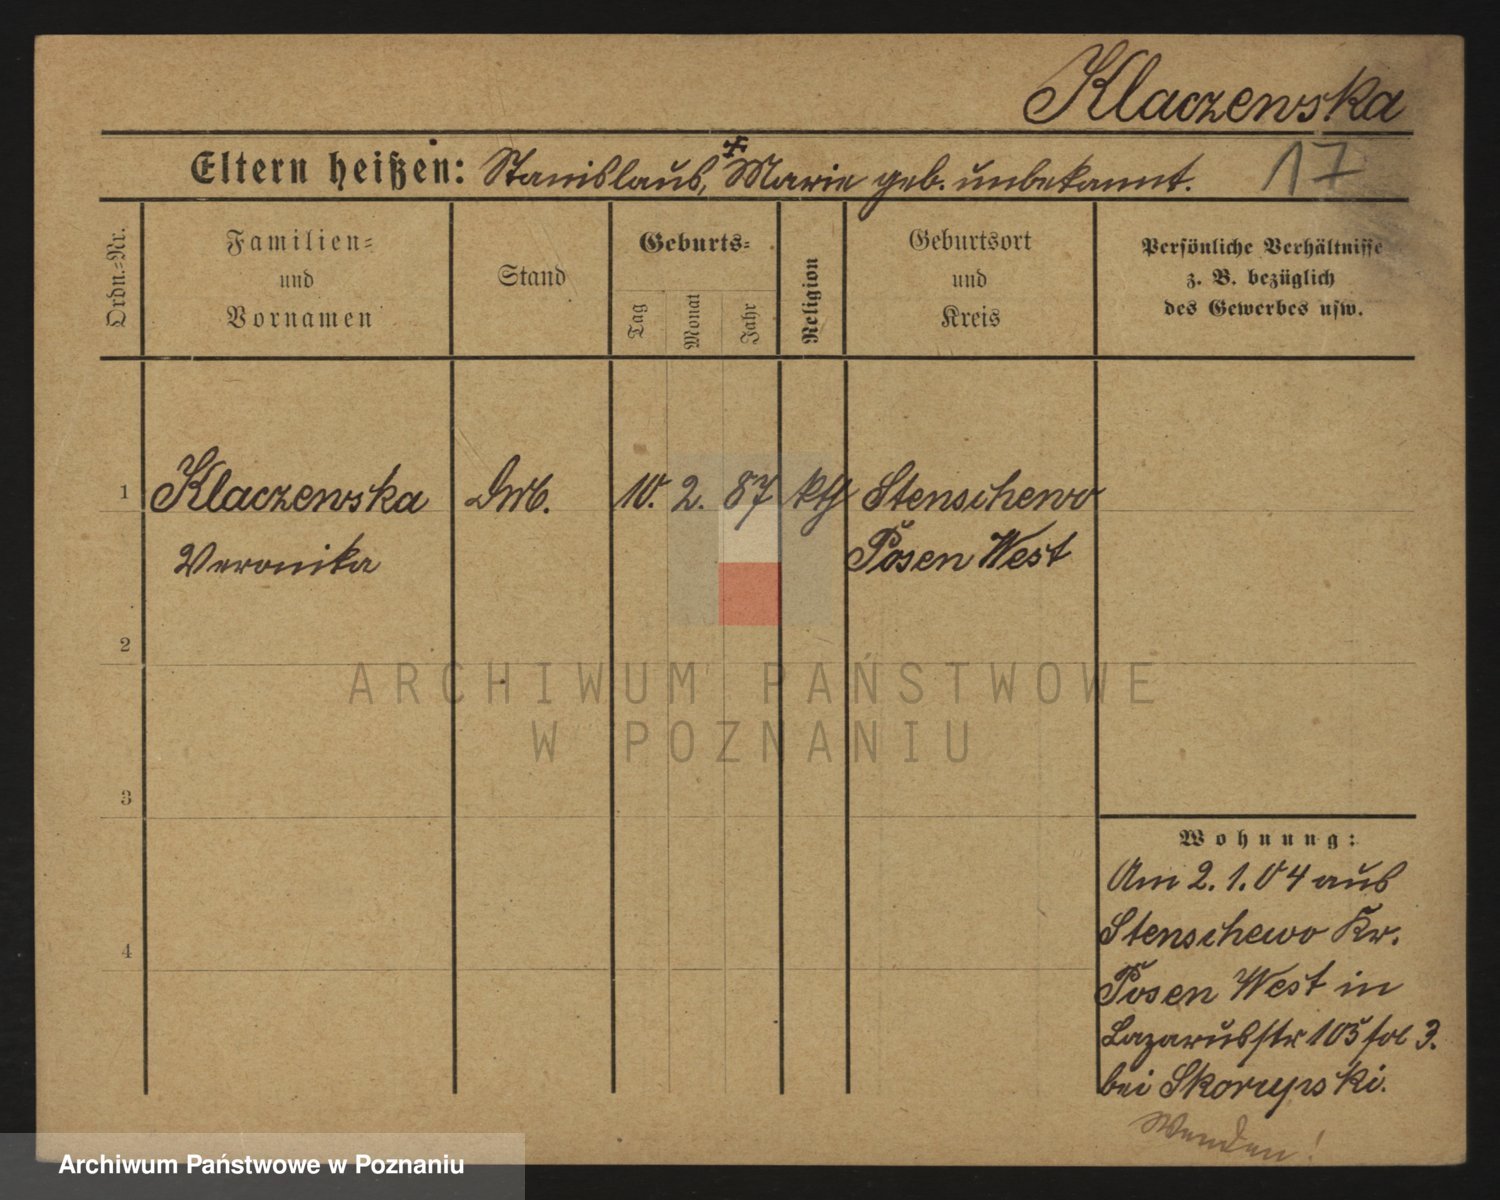 Klaczewska
Eltern heißen: Stanislaus, Marie geb. unbekannt. 17
Ordn.-Nr.
Familien-
und
Vornamen
Stand
Geburts-
Tag
Monat
Jahr
Religion
Geburtsort
und
Kreis
Persönliche Verhältnisse
z. B. bezüglich
des Gewerbes usw.
1 Klaczewska 10. 2. 87 kth Stenschewo
Veronika Posen West
2
ARCHIWUM PAŃSTWOWE
W POZNANIU
3
Wohnung:
Am 2. 1. 04 aus
Stenschewo Kr.
4
Posen West in
Lazarusstr 105 3.
bei Skorupski.
Wenden!
Archiwum Państwowe w Poznaniu